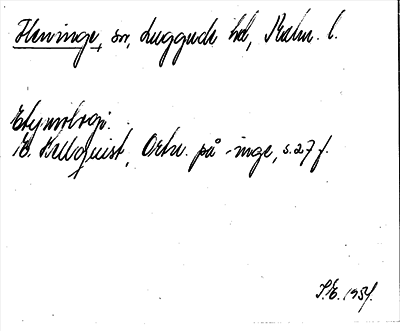 Fleninge, sn, Luggude hd, Malm. l.
Etymologi.
E. Hellquist, Ortn. på -inge, s. 27 f.
S.E. 1954.